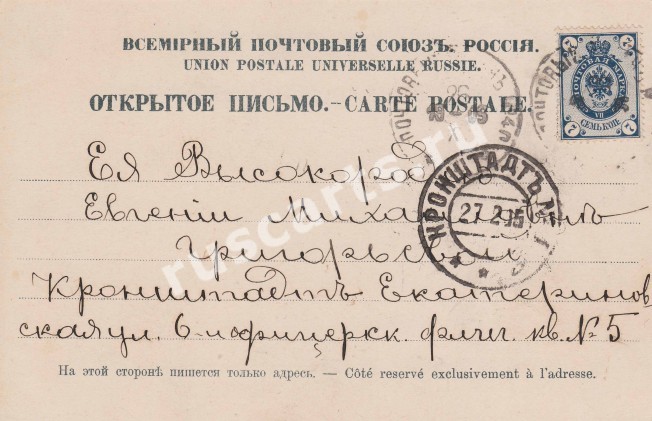 ВСЕМІРНЫЙ ПОЧТОВЫЙ СОЮЗЪ. РОССІЯ.
UNION POSTALE UNIVERSELLE RUSSIE.
ОТКРЫТОЕ ПИСЬМО.–CARTE POSTALE.
7 ПОЧТОВАЯ МАРКА 7
7 СЕМЬ КОП. 7
Ея Высокород
Евгеніи Михайловнѣ
КРОНШТАДТЪ
27.2.05
Григорьевой
Кронштадтъ Екатеринов
ская ул. 6-й офицерск. флиг. кв. № 5
На этой сторонѣ пишется только адресъ. — Côté reservé exclusivement à l'adresse.
ruscarts.ru